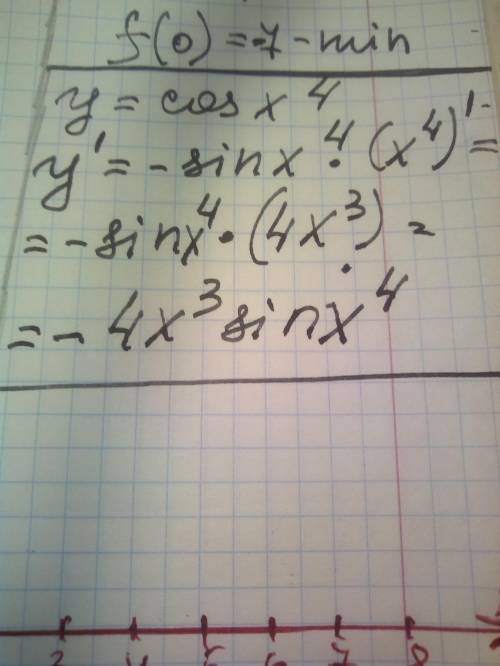 f(0) = -7 - min
y = cos x⁴
y' = - sin x⁴ · (x⁴)' =
= - sin x⁴ · (4x³) =
= - 4x³ sin x⁴